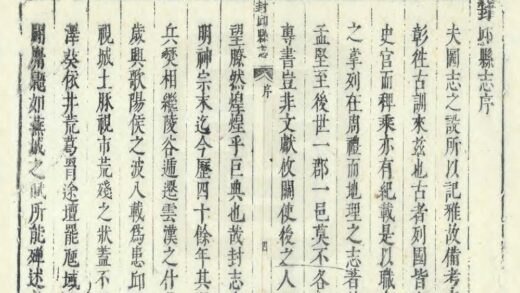 封邱縣志序
夫圖志之設所以記雅故備考
彰徃古訓來茲也古者列國皆
史官而稗乘亦有紀載是以職
之掌列在周禮而地理之志著
孟堅至後世一郡一邑莫不各
專書豈非文獻攸關使後之人
封邱縣志 序 四
望瞭然煌煌乎巨典也哉封志
明神宗末迄今歷四十餘年其
兵燹相繼陵谷逓遷雲漢之什
歲興歌陽侯之波八載爲患邱
視城土脉視市荒殘之狀蓋不
澤葵依井荒葛罥途壇羅虺域
鬬麏鼯如蕪城之賦所能殫述